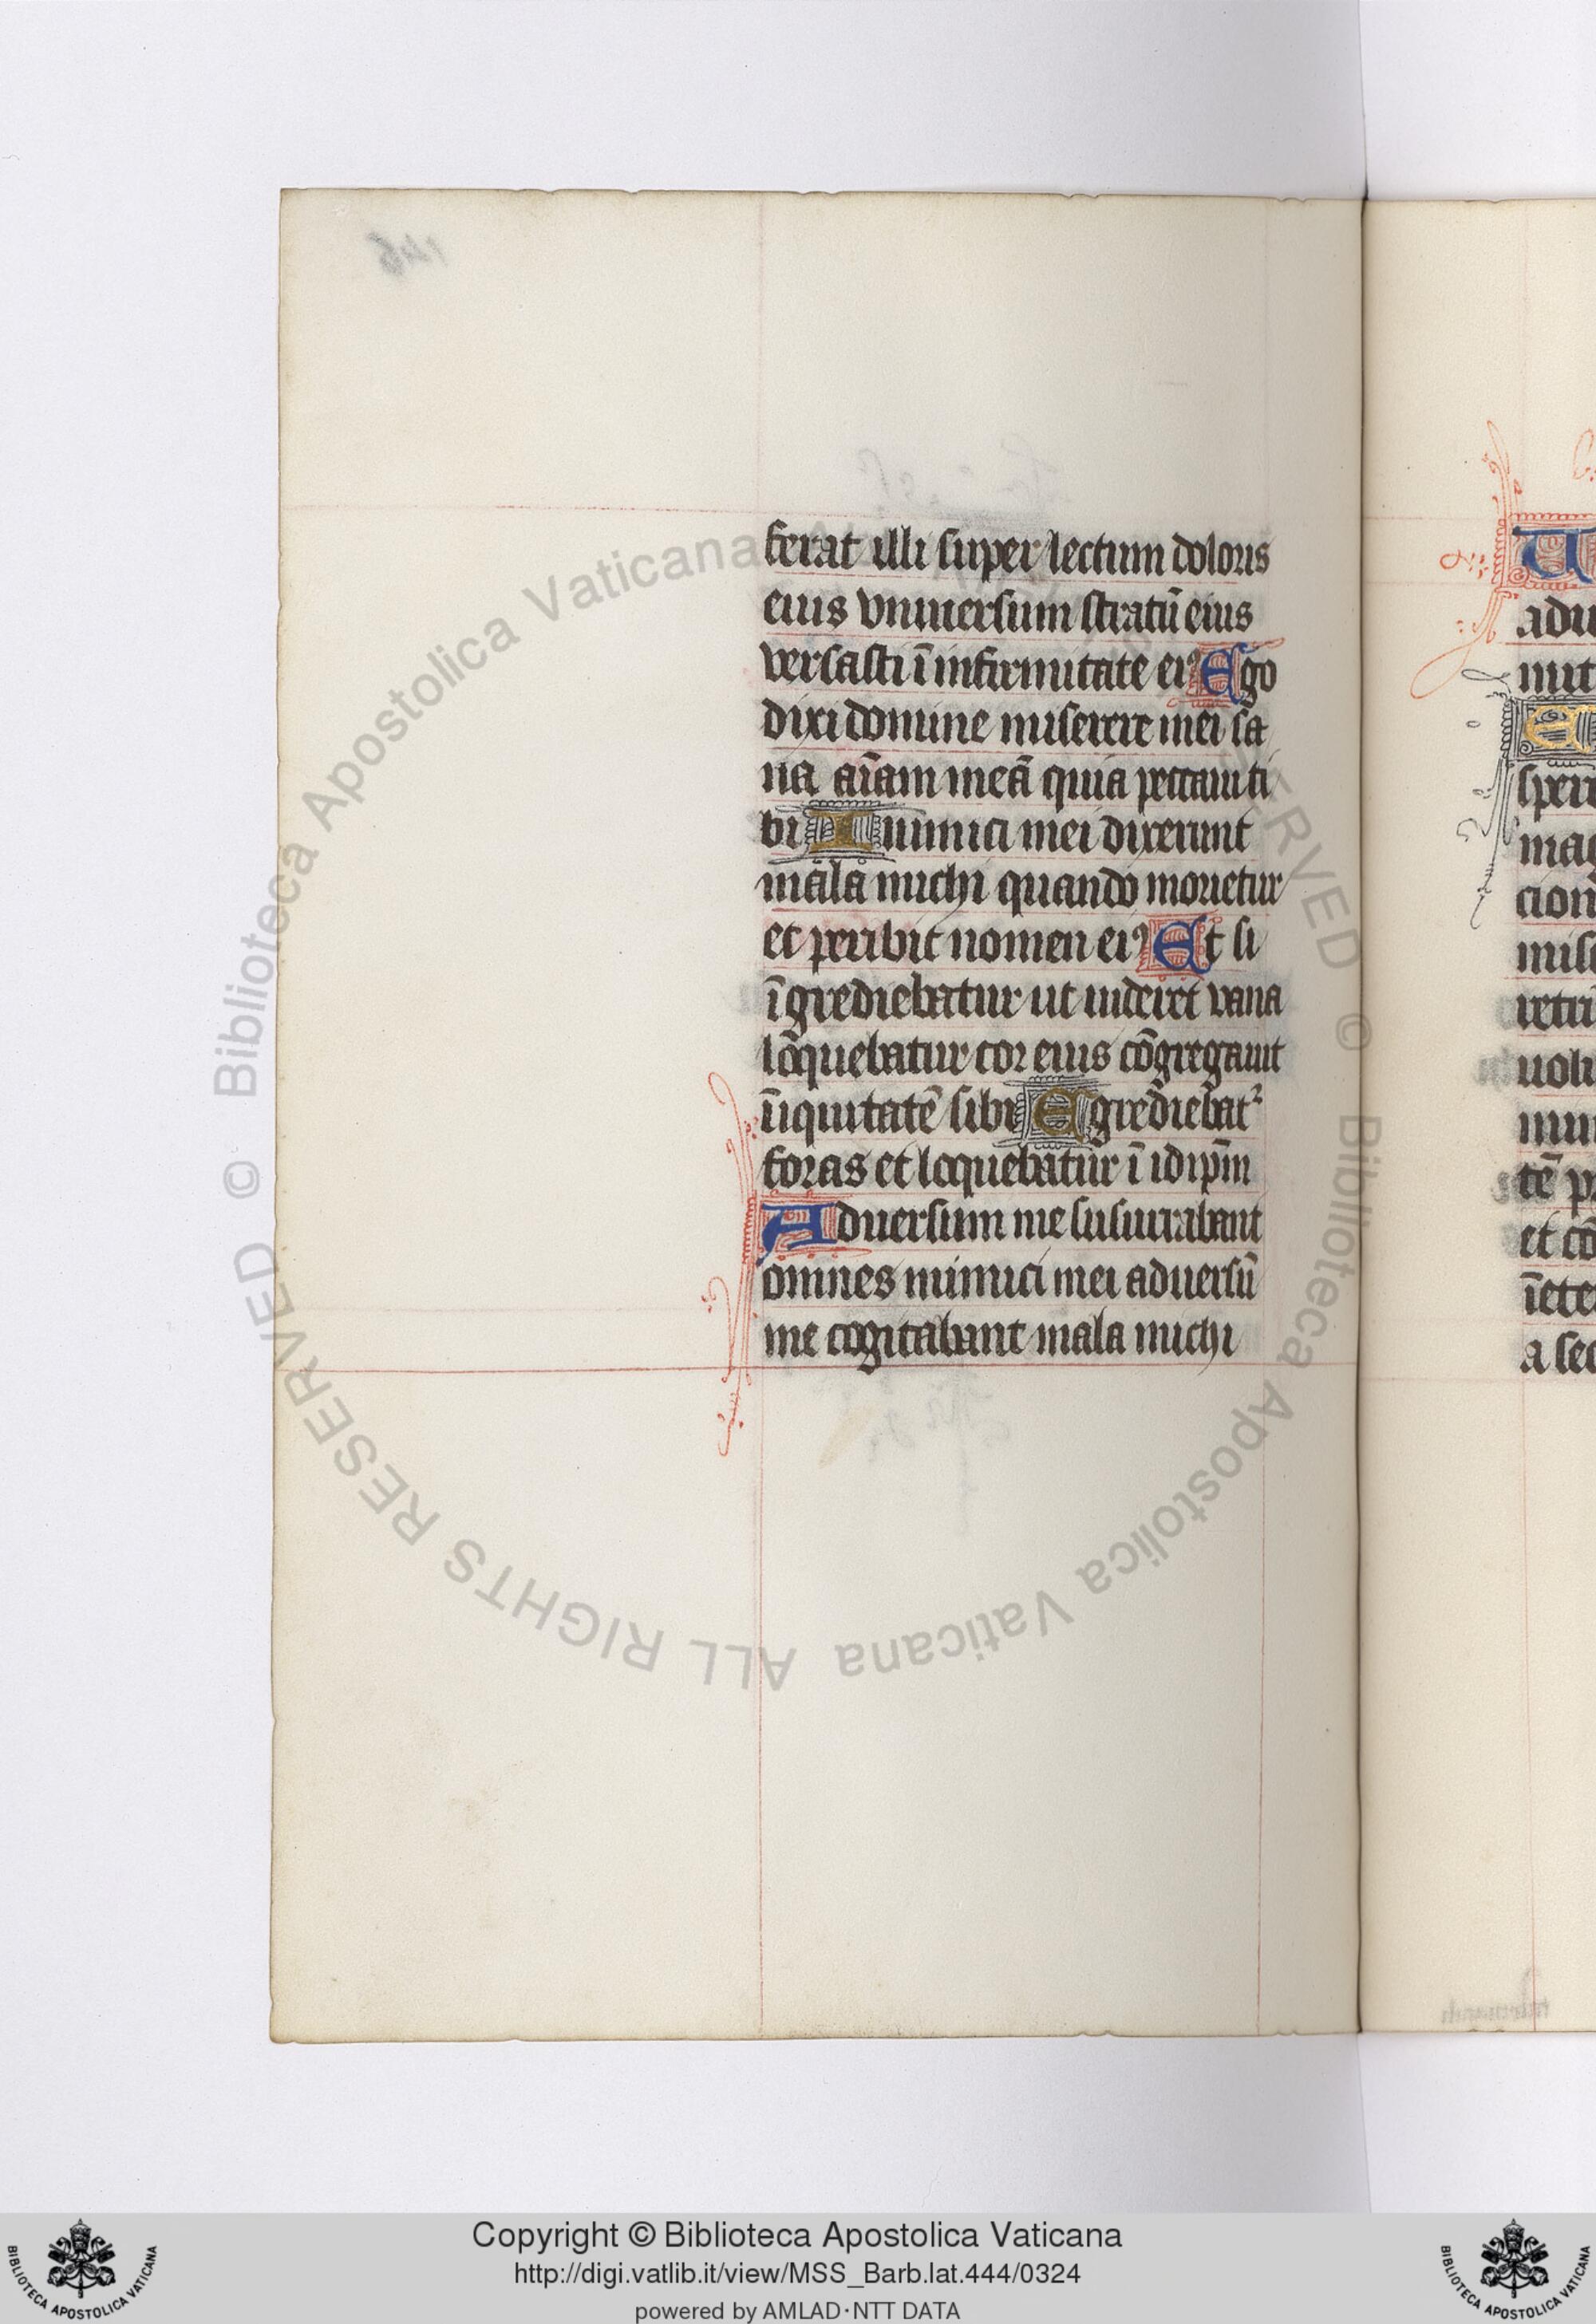 ferat illi super lectum doloris
eius vniuersum stratū eius
versasti ī infirmitate eiꝰ Ego
dixi domine miserere mei sa
na aīam meā quia peccaui ti
bi Inimici mei dixerunt
mala michi quando morietur
et peribit nomen eiꝰ Et si
īgrediebatur ut uideret vana
loquebatur cor eius cōgregauit
īiquitatē sibi Egrediebat᷑
foras et loquebatur ī idip̄m
Aduersum me susurrabant
omnes inimici mei aduersū
me cogitabant mala michi
adu
mit
sperⁱ
mag
cion
mis
retri
uolu
mun
tē p
et cō
īete
a sec
© Biblioteca Apostolica Vaticana ALL RIGHTS RESERVED © Biblioteca Apostolica Vaticana ALL RIGHTS RESERVED
Copyright © Biblioteca Apostolica Vaticana
http://digi.vatlib.it/view/MSS_Barb.lat.444/0324
powered by AMLAD·NTT DATA
BIBLIOTECA APOSTOLICA VATICANA
BIBLIOTECA APOSTOLICA VATICANA